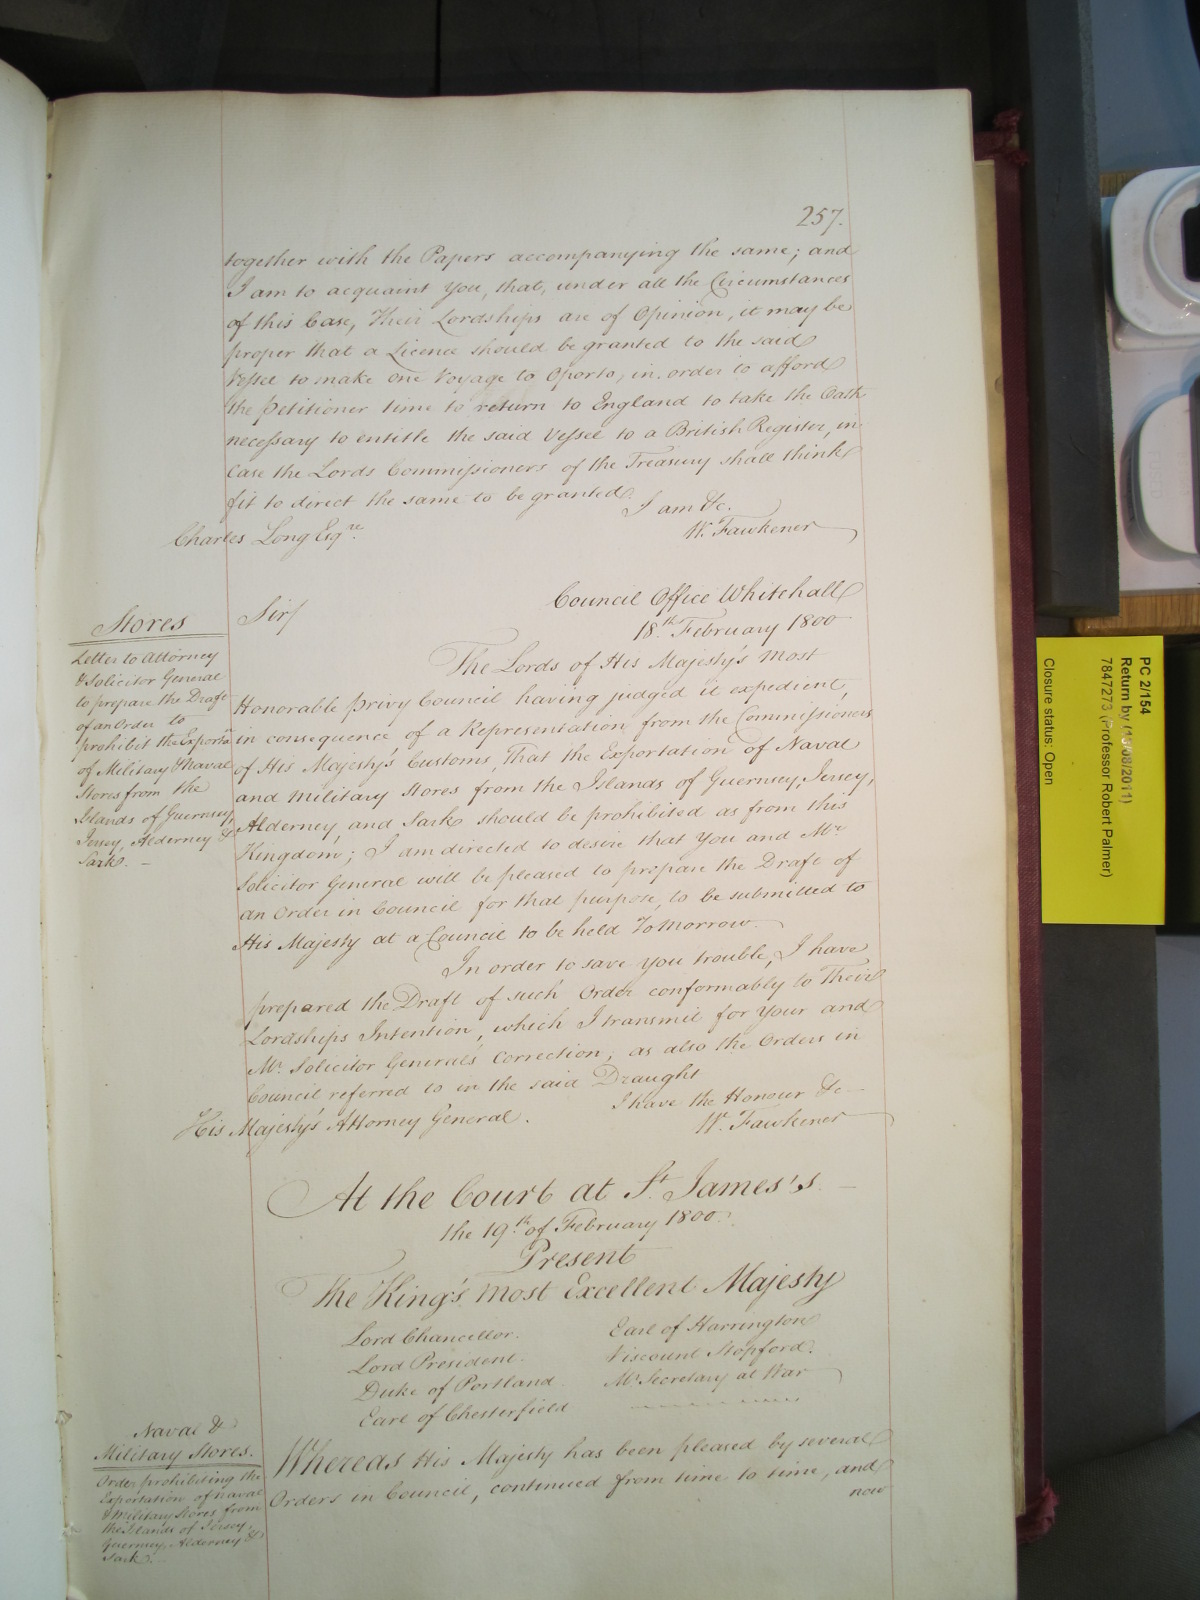 257.
together with the Papers accompanying the same; and
I am to acquaint You, that, under all the Circumstances
of this Case, Their Lordships are of Opinion, it may be
proper that a Licence should be granted to the said
Vessel to make one Voyage to Oporto, in order to afford
the Petitioner time to return to England to take the Oath
necessary to entitle the said Vessel to a British Register, in
Case the Lords Commissioners of the Treasury shall think
fit to direct the same to be granted.
I am &c.
W. Fawkener
Charles Long Esqre.
Council Office Whitehall
18.th February 1800
Stores
Letter to Attorney
& Solicitor General
to prepare the Draft
of an Order to
prohibit the Exporta
of Military & Naval
Stores from the
Islands of Guernsey,
Jersey, Alderney &
Sark. –
Sir/
The Lords of His Majesty's most
Honorable Privy Council having judged it expedient,
in consequence of a Representation from the Commissioners
of His Majesty's Customs, That the Exportation of Naval
and Military Stores from the Islands of Guernsey, Jersey,
Alderney, and Sark should be prohibited as from this
Kingdom; I am directed to desire that You and Mr
Solicitor General will be pleased to prepare the Draft of
an Order in Council for that purpose, to be submitted to
His Majesty at a Council to be held To morrow.
In order to save you trouble, I have
prepared the Draft of such Order conformably to Their
Lordships Intention, which I transmit for Your and
Mr. Solicitor General's Correction, as also the Orders in
Council referred to in the said Draught
I have the Honour &c
W. Fawkener
His Majesty's Attorney General.
At the Court at St. James's
the 19th of February 1800.
Present
The King's most Excellent Majesty
Lord Chancellor. Earl of Harrington
Lord President. Viscount Stopford.
Duke of Portland Mr. Secretary at War
Earl of Chesterfield
Naval &
Military Stores.
Order prohibiting the
Exportation of Naval
& Military Stores from
the Islands of Jersey,
Guernsey, Alderney &
Sark.
Whereas His Majesty has been pleased by several
Orders in Council, continued from time to time, and
now
PC 2/154
Return by (15/08/2011)
7847273 (Professor Robert Palmer)
Closure status: Open